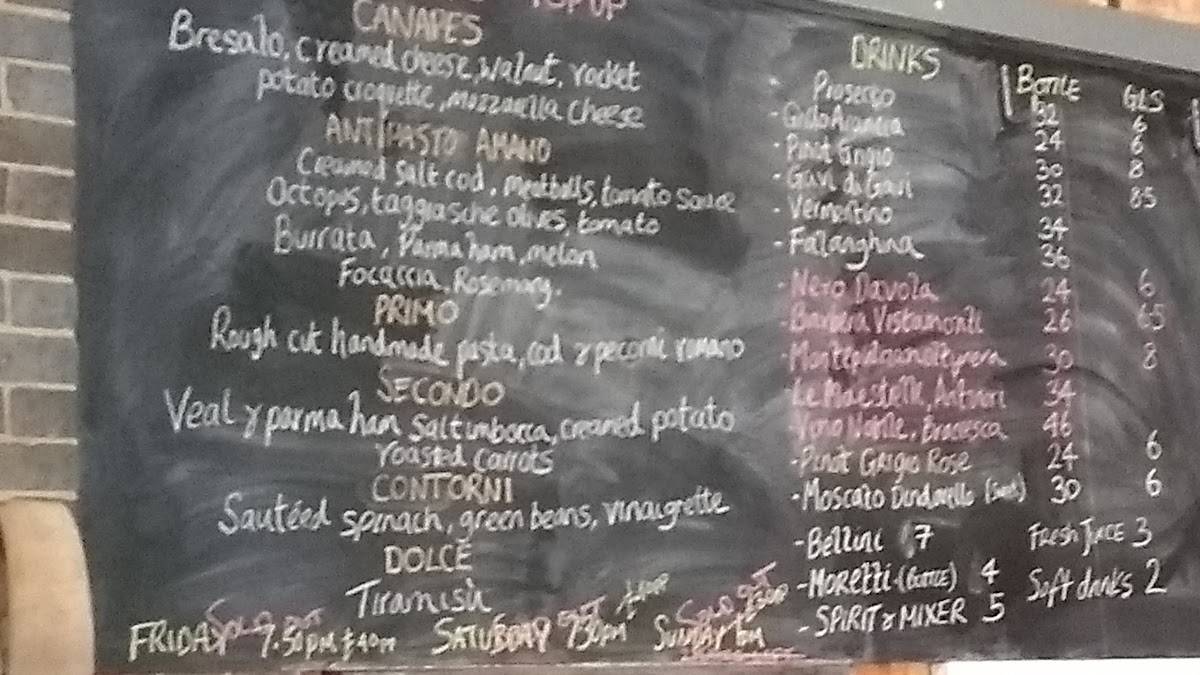 POP UP
CANAPES
Bresalo, creamed cheese, walnut, rocket
potato croquette, mozzarella cheese
ANTIPASTO AMANO
Creamed salt cod, meatballs, tomato sauce
Octopus, taggiasche olives, tomato
Burrata, Parma ham, melon
Focaccia, Rosemary.
PRIMO
Rough cut handmade pasta, cod & romano
SECONDO
Veal & parma ham Saltimbocca, creamed potato
roasted carrots
CONTORNI
Sautéed spinach, green beans, vinaigrette
DOLCE
Tiramisù
FRIDAY 7.30PM £40PP SATURDAY 730PM SUNDAY
SOLD OUT
DRINKS BOTTLE GLS
Prosecco 32 6
- 24 6
- Pinot Grigio 30 8
- Gavi di Gavi 32 85
- Vermentino 34
- Falanghina 36
- Nero Davola 24 6
- Barbera 26 65
- 30 8
- Le Maestrelle, Antinori 34
- Vino Nobile, Bracesca 46
- Pinot Grigio Rose 24 6
- Moscato 30 6
- Bellini 7 FRESH JUICE 3
- MORETTI (BOTTLE) 4 Soft drinks 2
- SPIRIT & MIXER 5